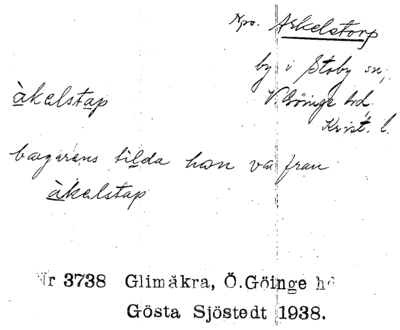 Npo. Arkelstorp
by i Stoby sn,
V. Göinge hd
Krist. l.
àkelstap
bagarens tilda hon va fran
àkelstap
Nr 3738 Glimåkra, Ö.Göinge hd
Gösta Sjöstedt 1938.